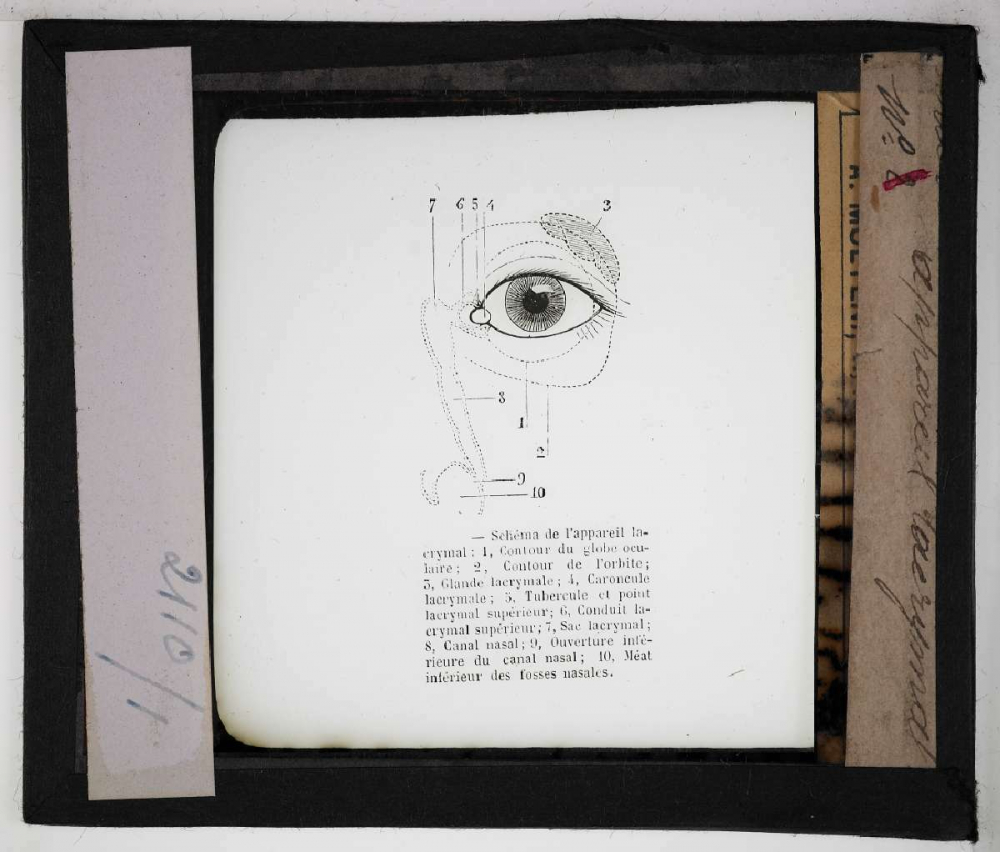 7 6 5 4 3
8
1
2
9
10
— Schéma de l'appareil la-
crymal : 1, Contour du globe ocu-
laire ; 2, Contour de l'orbite ;
3, Glande lacrymale ; 4, Caroncule
lacrymale ; 5, Tubercule et point
lacrymal supérieur ; 6, Conduit la-
crymal supérieur ; 7, Sac lacrymal ;
8, Canal nasal ; 9, Ouverture infé-
rieure du canal nasal ; 10, Méat
inférieur des fosses nasales.
2110/1
A. MOLTENI,
appareil lacrymal